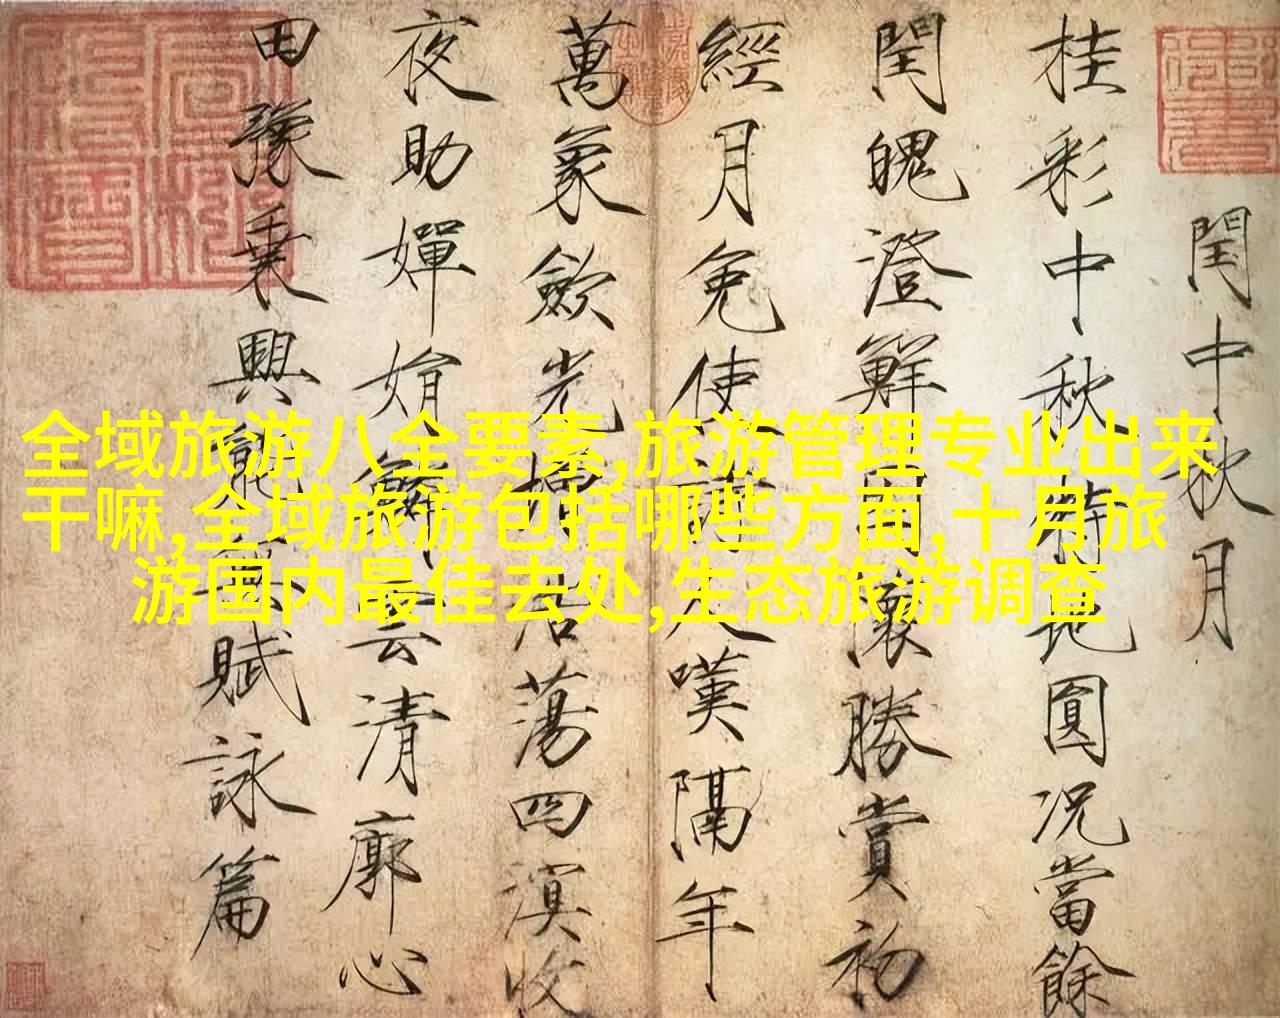 全域旅游八全要素,旅游管理专业出来
干嘛,全域旅游包括哪些方面,十月旅
游国内最佳去处,生态旅游调查
閏中秋月
桂彩中秋特地圓況當餘
閏魄澄鮮因懷勝賞初
經月免使詩人嘆隔年
萬象歛光增浩蕩四溟收
夜助嬋娟鱗雲清廓心
田豫乗興能無賦詠篇